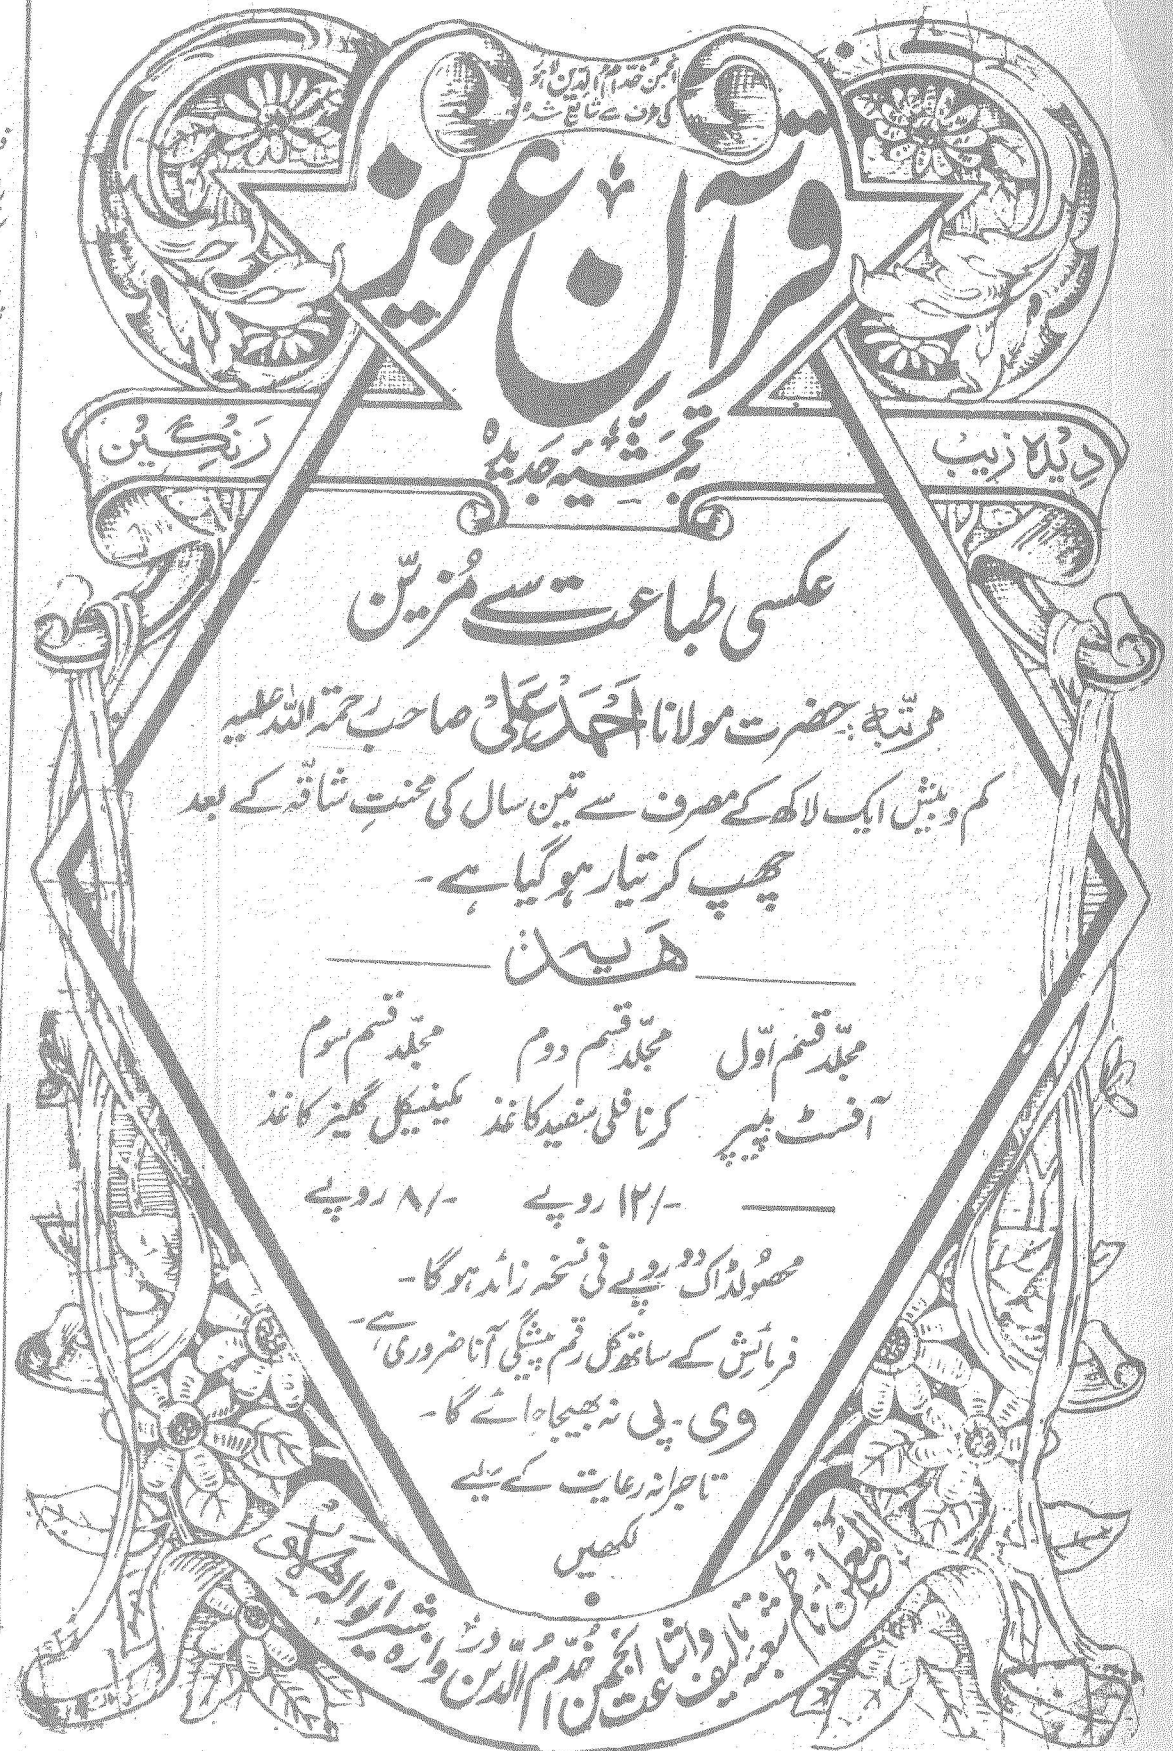 انجمن خدام الدین لاہور
کی طرف سے شائع شدہ
قرآن عزیز
دیدہ زیب
بہ تحشیۂ جدیدہ
رنگین
عکسی طباعت سے مُزیّن
مرتبہ: حضرت مولانا احمد علی صاحب رحمۃ اللہ علیہ
کم و بیش ایک لاکھ کے مصرف سے تین سال کی محنتِ شاقّہ کے بعد
چھپ کر تیار ہو گیا ہے۔
ھدیہ
مجلّد قسم اوّل مجلّد قسم دوم مجلّد قسم سوم
آفسٹ پیپر کرنافلی سفید کاغذ مکینیکل گلیز کاغذ
—— ۱۲/- روپے ۸/- روپے
محصولڈاک دو روپے فی نسخہ زائد ہو گا۔
فرمائش کے ساتھ کل رقم پیشگی آنا ضروری ہے۔
وی۔ پی نہ بھیجا جائے گا۔
تاجرانہ رعایت کے لیے
لکھیں
المعلن ناظم شعبہ تالیف و اشاعت انجمن خدام الدین دروازہ شیرانوالہ لاہور